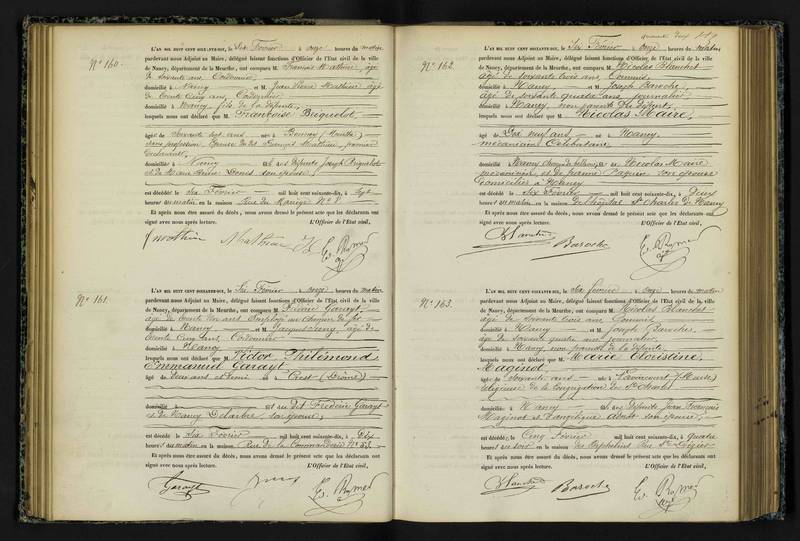 N° 160.
L'AN MIL HUIT CENT SOIXANTE-DIX, le Six Février à onze heures du matin
pardevant nous Adjoint au Maire, délégué faisant fonctions d'Officier de l'État civil de la ville
de Nancy, département de la Meurthe, ont comparu M. François Mathieu, âgé
de soixante ans, Cordonnier
domicilié à Nancy et M. Jean Pierre Mathieu âgé
de trente cinq ans, Cordonnier
domicilié à Nancy, fils de la défunte,
lesquels nous ont déclaré que Françoise Briquelot
âgée de Soixante sept ans née à (Meurthe)
sans profession, Épouse du dit François Mathieu, premier
déclarant
domiciliée à Nancy des défunts Joseph Briquelot
et de Marie Denis son épouse,
est décédée le Six Février mil huit cent soixante-dix, à Sept
heures du matin en la maison Rue du Manège N° 8
Et après nous être assuré du décès, nous avons dressé le présent acte que les déclarants ont
signé avec nous après lecture. L'Officier de l'État civil,
Mathieu
N° 161.
L'AN MIL HUIT CENT SOIXANTE-DIX, le Six Février à onze heures du matin
pardevant nous Adjoint au Maire, délégué faisant fonctions d'Officier de l'État civil de la ville
de Nancy, département de la Meurthe, ont comparu M. Garayt,
âgé de trente ans, Employé au Chemin de fer
domicilié à Nancy et M. Jacques âgé de
trente cinq ans, Cordonnier
domicilié à Nancy
lesquels nous ont déclaré que Hector Philémond
Emmanuel Garayt
âgé de Deux ans et demi né à Crest (Drôme)
domicilié à fils du dit Frédéric Garayt
et de Nancy son épouse,
est décédé le Six Février mil huit cent soixante-dix, à Dix
heures du matin en la maison Rue de la Commanderie N° 52
Et après nous être assuré du décès, nous avons dressé le présent acte que les déclarants ont
signé avec nous après lecture. L'Officier de l'État civil,
Garayt
119
N° 162.
L'AN MIL HUIT CENT SOIXANTE-DIX, le Six Février à onze heures du matin
pardevant nous Adjoint au Maire, délégué faisant fonctions d'Officier de l'État civil de la ville
de Nancy, département de la Meurthe, ont comparu M. Nicolas Blanchet
âgé de soixante trois ans, Commis
domicilié à Nancy et M. Joseph Baroche,
âgé de soixante quatre ans, journalier
domicilié à Nancy, non parents du défunt,
lesquels nous ont déclaré que Nicolas Maire,
âgé de Dix neuf ans né à Nancy
mécanicien Célibataire
domicilié à Nancy fils de Nicolas Maire
mécanicien, et de Jeanne Paquin son épouse
domiciliés à Nancy
est décédé le Six Février mil huit cent soixante-dix, à Deux
heures du matin en la maison de l'hôpital St Charles de Nancy
Et après nous être assuré du décès, nous avons dressé le présent acte que les déclarants ont
signé avec nous après lecture. L'Officier de l'État civil,
Blanchet Baroche
N° 163.
L'AN MIL HUIT CENT SOIXANTE-DIX, le Six février à onze heures du matin
pardevant nous Adjoint au Maire, délégué faisant fonctions d'Officier de l'État civil de la ville
de Nancy, département de la Meurthe, ont comparu M. Nicolas Blanchet
âgé de soixante trois ans, Commis
domicilié à Nancy et M. Joseph Baroche,
âgé de soixante quatre ans, journalier
domicilié à Nancy non parents de la défunte,
lesquels nous ont déclaré que Marie Christine
Maginot
âgée de Soixante ans née à (Meuse)
religieuse de la Congrégation de St Charles
domiciliée à Nancy des défunts Jean François
Maginot et Angélique son épouse,
est décédée le Cinq Février mil huit cent soixante-dix, à Quatre
heures du soir en la maison des Orphelines
Et après nous être assuré du décès, nous avons dressé le présent acte que les déclarants ont
signé avec nous après lecture. L'Officier de l'État civil,
Blanchet Baroche